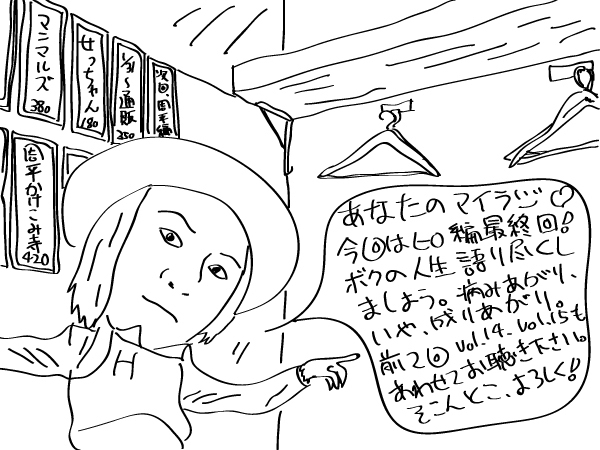 マニマルズ
380
せっちゃん
180
1/31〜通販
250
次回、周平編
周平かけこみ寺
420
H
あなたのマイラジ♡
今回はヒロ編最終回!
ボクの人生語り尽くし
ましょう。病みあがり、
いや、成りあがり。
前2回 vol.14、vol.15も
あわせてお聴き下さい。
そこんとこ、よろしく!